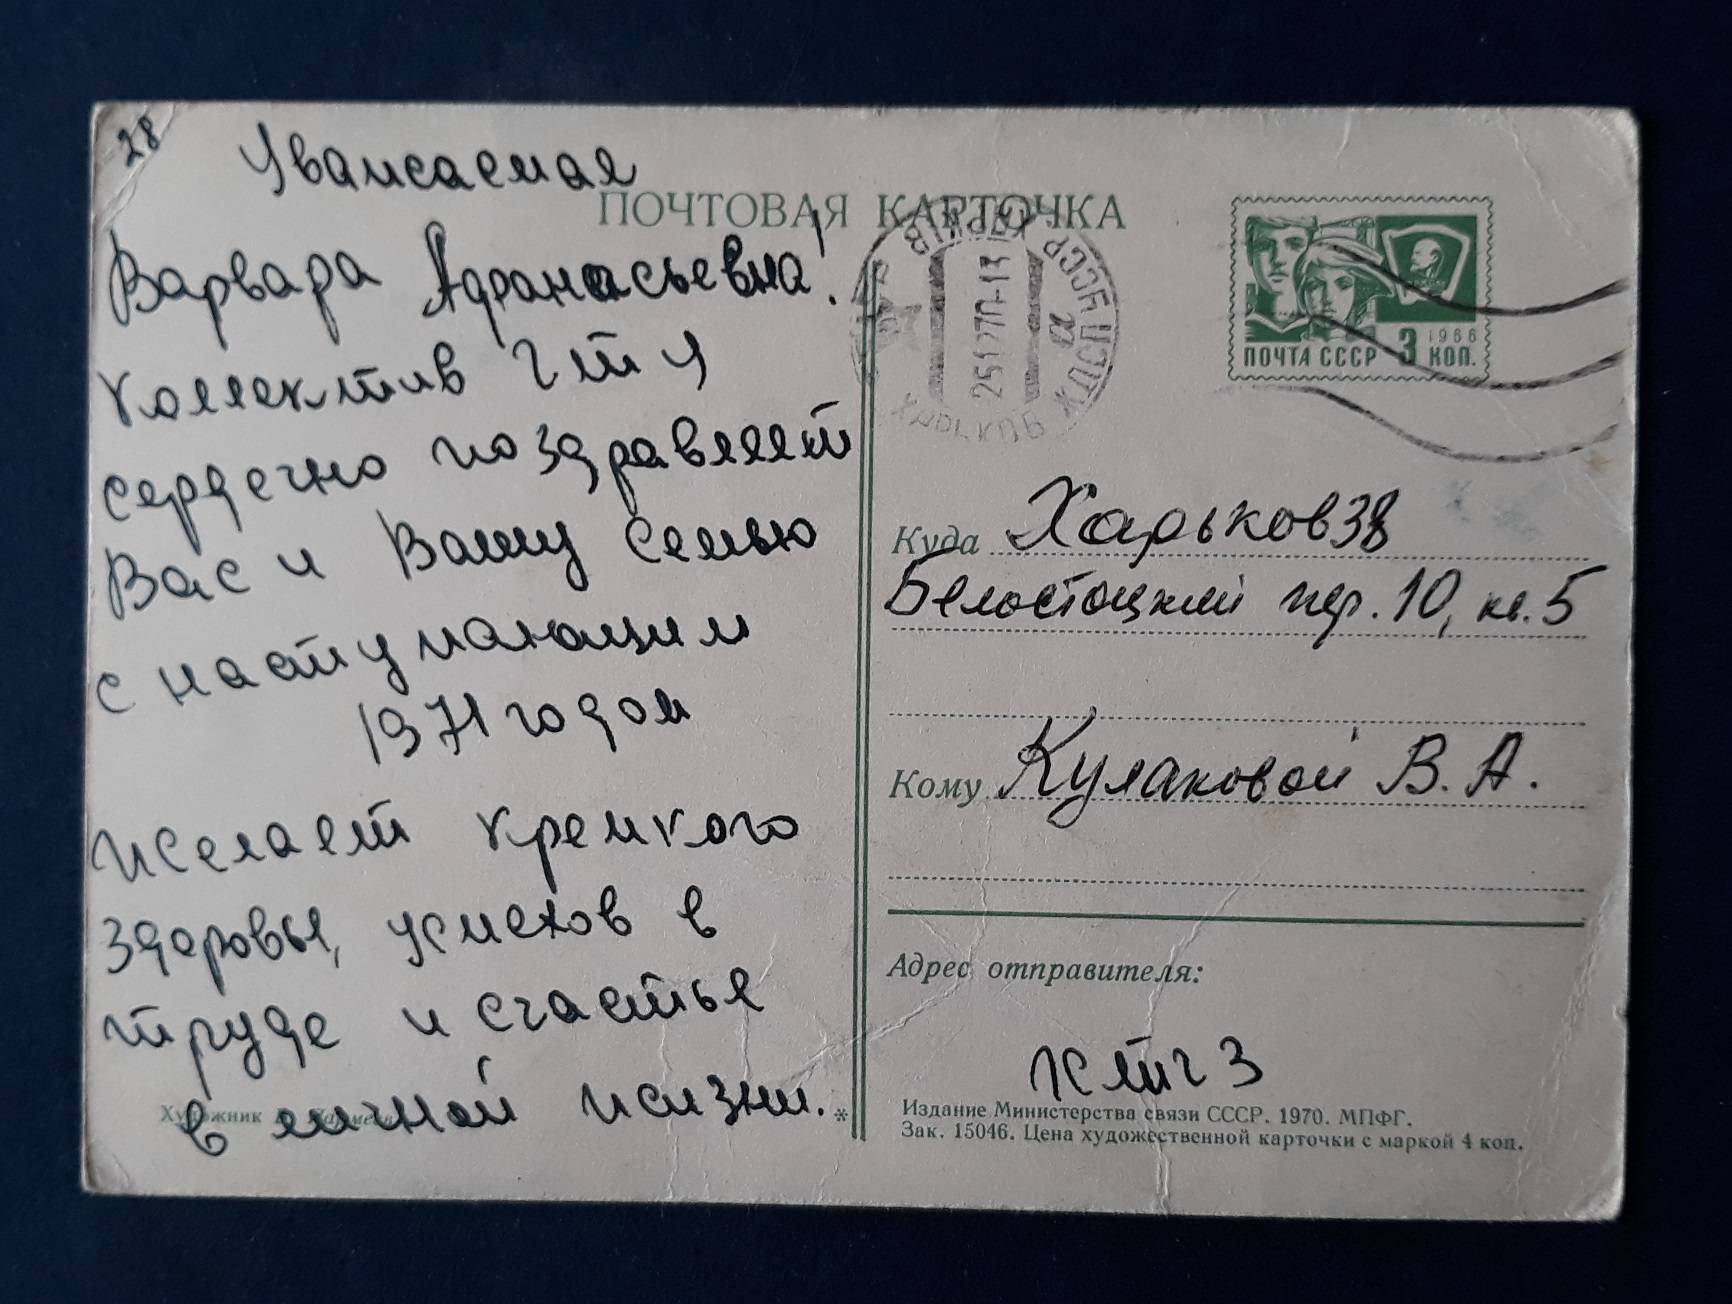 28
Уважаемая
Варвара Афанасьевна!
Коллектив ГТУ
сердечно поздравляет
Вас и Вашу семью
с наступающим
1971 годом
желает крепкого
здоровья, успехов в
труде и счастье
в личной жизни.
Художник
*
ПОЧТОВАЯ КАРТОЧКА
ХАРКІВ ЖДПС УССР
а
251270-13
ХАРЬКОВ
1966
ПОЧТА СССР 3 КОП.
Куда Харьков 38
Белостоцкий пер. 10, кв. 5
Кому Кулаковой В. А.
Адрес отправителя:
Издание Министерства связи СССР. 1970. МПФГ.
Зак. 15046. Цена художественной карточки с маркой 4 коп.